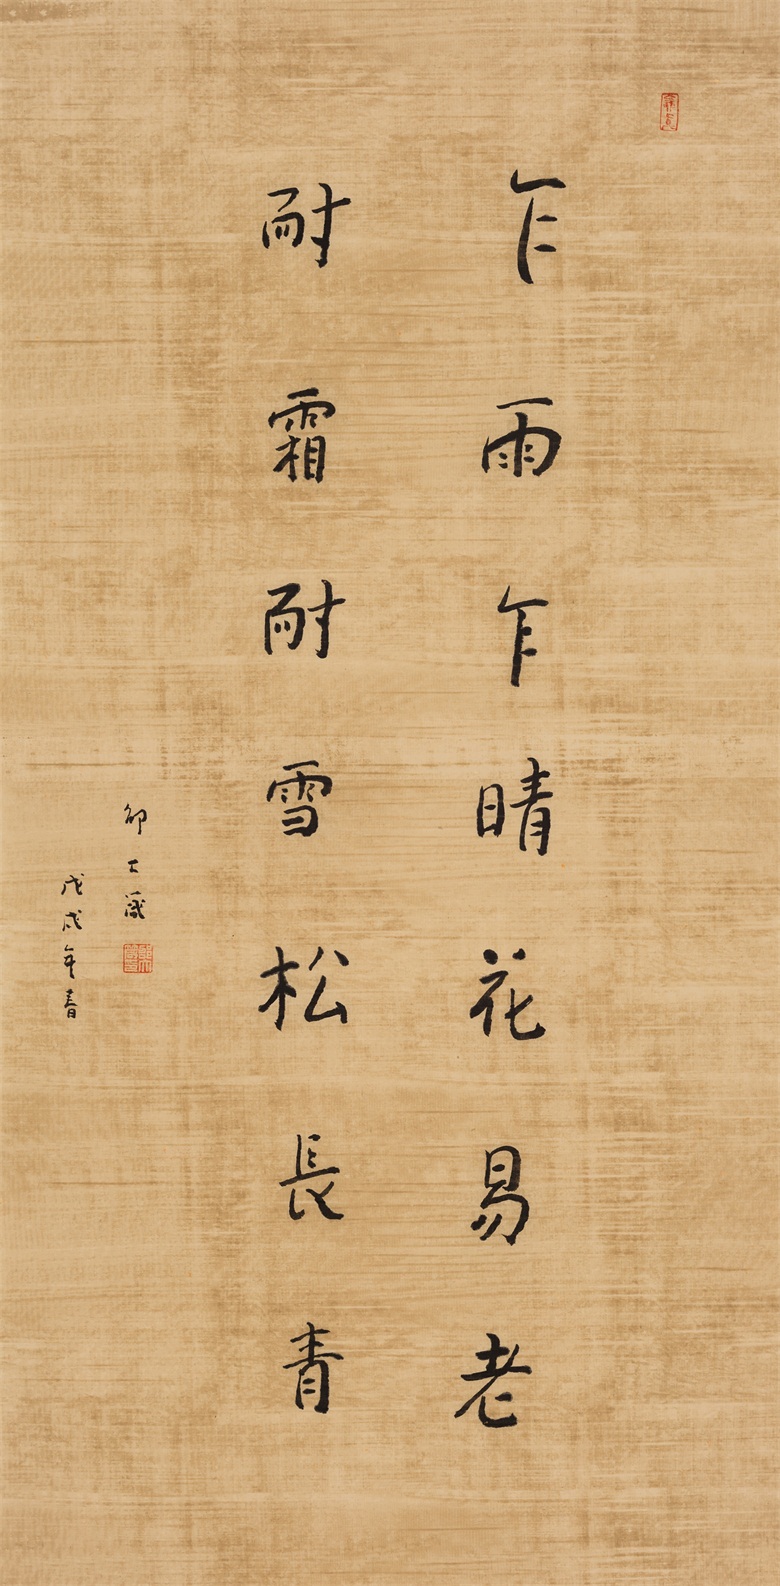 乍雨乍晴花易老
耐霜耐雪松長青
戊戌年春